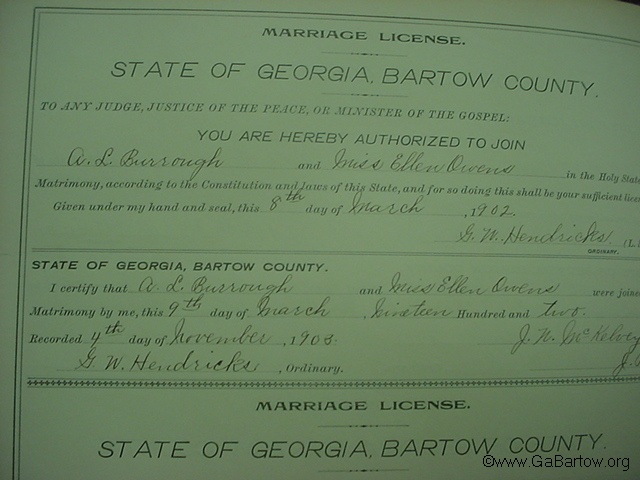 MARRIAGE LICENSE.
STATE OF GEORGIA, BARTOW COUNTY.
TO ANY JUDGE, JUSTICE OF THE PEACE, OR MINISTER OF THE GOSPEL:
YOU ARE HEREBY AUTHORIZED TO JOIN
A. L. Burrough and Miss Ellen Owens in the Holy State
Matrimony, according to the Constitution and laws of this State, and for so doing this shall be your sufficient
Given under my hand and seal, this 8th day of March, 1902.
G. W. Hendricks (L.
ORDINARY.
STATE OF GEORGIA, BARTOW COUNTY.
I certify that A. L. Burrough and Miss Ellen Owens were joined
Matrimony by me, this 9th day of March, Nineteen Hundred and two.
Recorded 4th day of November, 1903. J. N. McKelvey
G. W. Hendricks, Ordinary. J.
MARRIAGE LICENSE.
STATE OF GEORGIA, BARTOW COUNTY.
©www.GaBartow.org